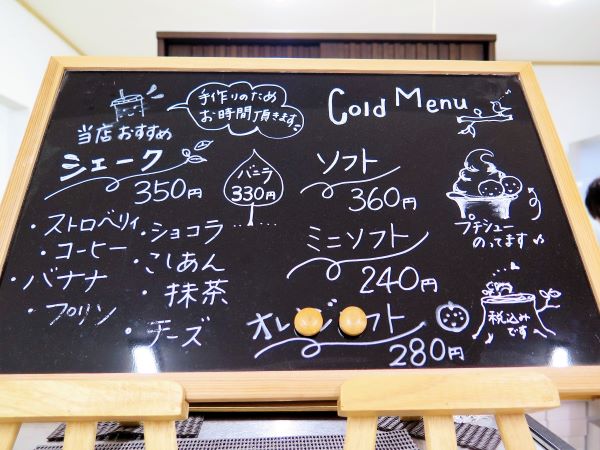 Cold Menu
手作りのため
お時間頂きます。
当店おすすめ
シェーク
350円
バニラ
330円
・ストロベリィ
・コーヒー
・バナナ
・プリン
・ショコラ
・こしあん
・抹茶
・チーズ
ソフト
360円
プチシュー
のってます♪
ミニソフト
240円
オレ
フト
280円
税込み
です